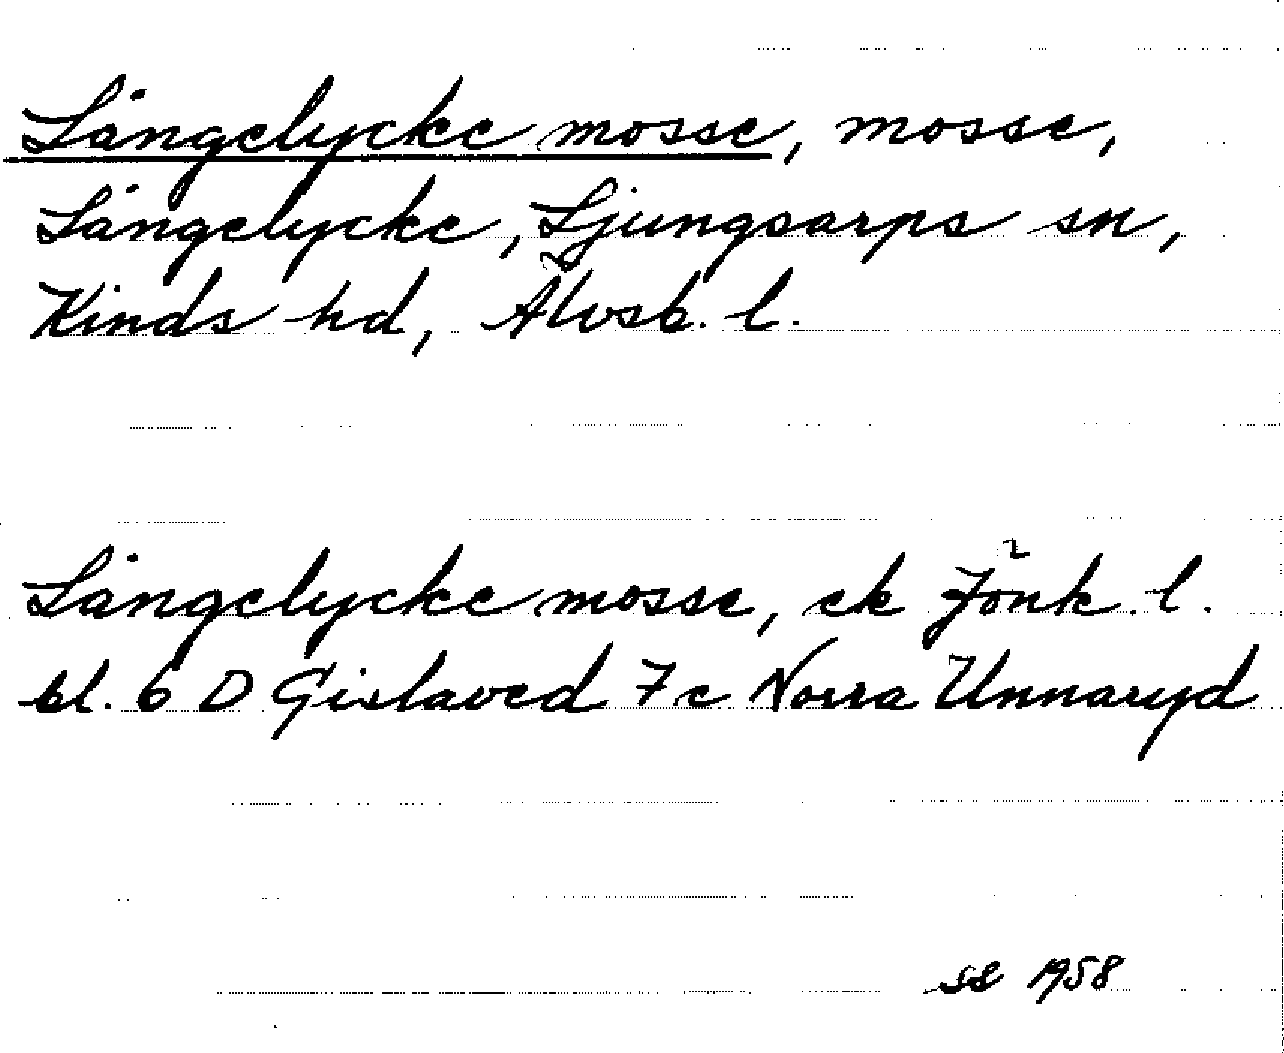 Långelycke mosse, mosse,
Långelycke, Ljungsarps sn,
Kinds hd, Älvsb. l.
Långelycke mosse, ek Jönk. l.
bl. 6 D Gislaved 7c Norra Unnaryd
SE 1958